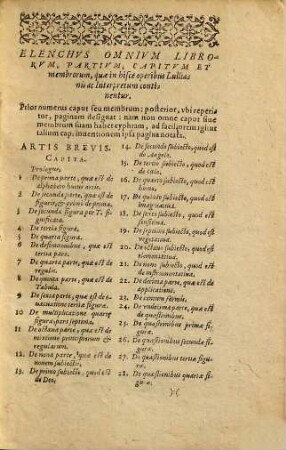 ELENCHVS OMNIVM LIBRO-
RVM, PARTIVM, CAPITVM ET
membrorum, quæ in hisce operibus Lullia-
nis ac Interpretum conti
nentur.
Prior numerus caput seu membrum; posterior, vbi reperia
tur, paginam designat: nam non omne caput siue
membrum suam habet cyphram, ad faciliorem igitur
talium cap. inuentionem ipsa pagina notata.
ARTIS BREVIS.
CAPITA.
Prologus.
1 De prima parte, quæ est de
alphabeto huius artis.
2 De secunda parte, quæ est de
figuris, & primò de prima.
3 De secunda figura per T. si-
gnificata.
4 De tertia figura.
5 De quarta figura.
6 De definitionibus, quæ est
tertia pars.
7 De quarta parte, quæ est de
regulis.
8 De quinta parte, quæ est de
Tabula.
9 De sexta parte, quæ est de e-
uacuatione tertiæ figuræ.
10 De multiplicatione quartæ
figuræ, pars septima.
11 De octaua parte, quæ est de
mixtione principiorum &
regularum.
12 De nona parte, quæ est de
nouem subiectis.
13 De primo subiecto, quod est
de Deo.
14 De secundo subiecto, quod est
de Angelo.
15 De tertio subiecto, quod est
de cœlo.
16 De quarto subiecto, quod est
de homine.
17 De quinto subiecto, quod est
imaginatiua.
18 De sexto subiecto, quod est
sensitiua.
19 De septimo subiecto, quod est
vegetatiua.
20 De octauo subiecto, quod est
elementatiua.
21 De nono subiecto, quod est
de instrumentatiua.
22 De decima parte, quæ est de
applicatione.
23 De centum formis.
24 De vndecima parte, quæ est
de quæstionibus.
25 De quæstionibus primæ fi-
guræ.
26 De quæstionibus secundæ fi-
guræ.
27 De quæstionibus tertiæ figu-
ræ.
28 De quæstionibus quartæ fi-
guræ.
)(